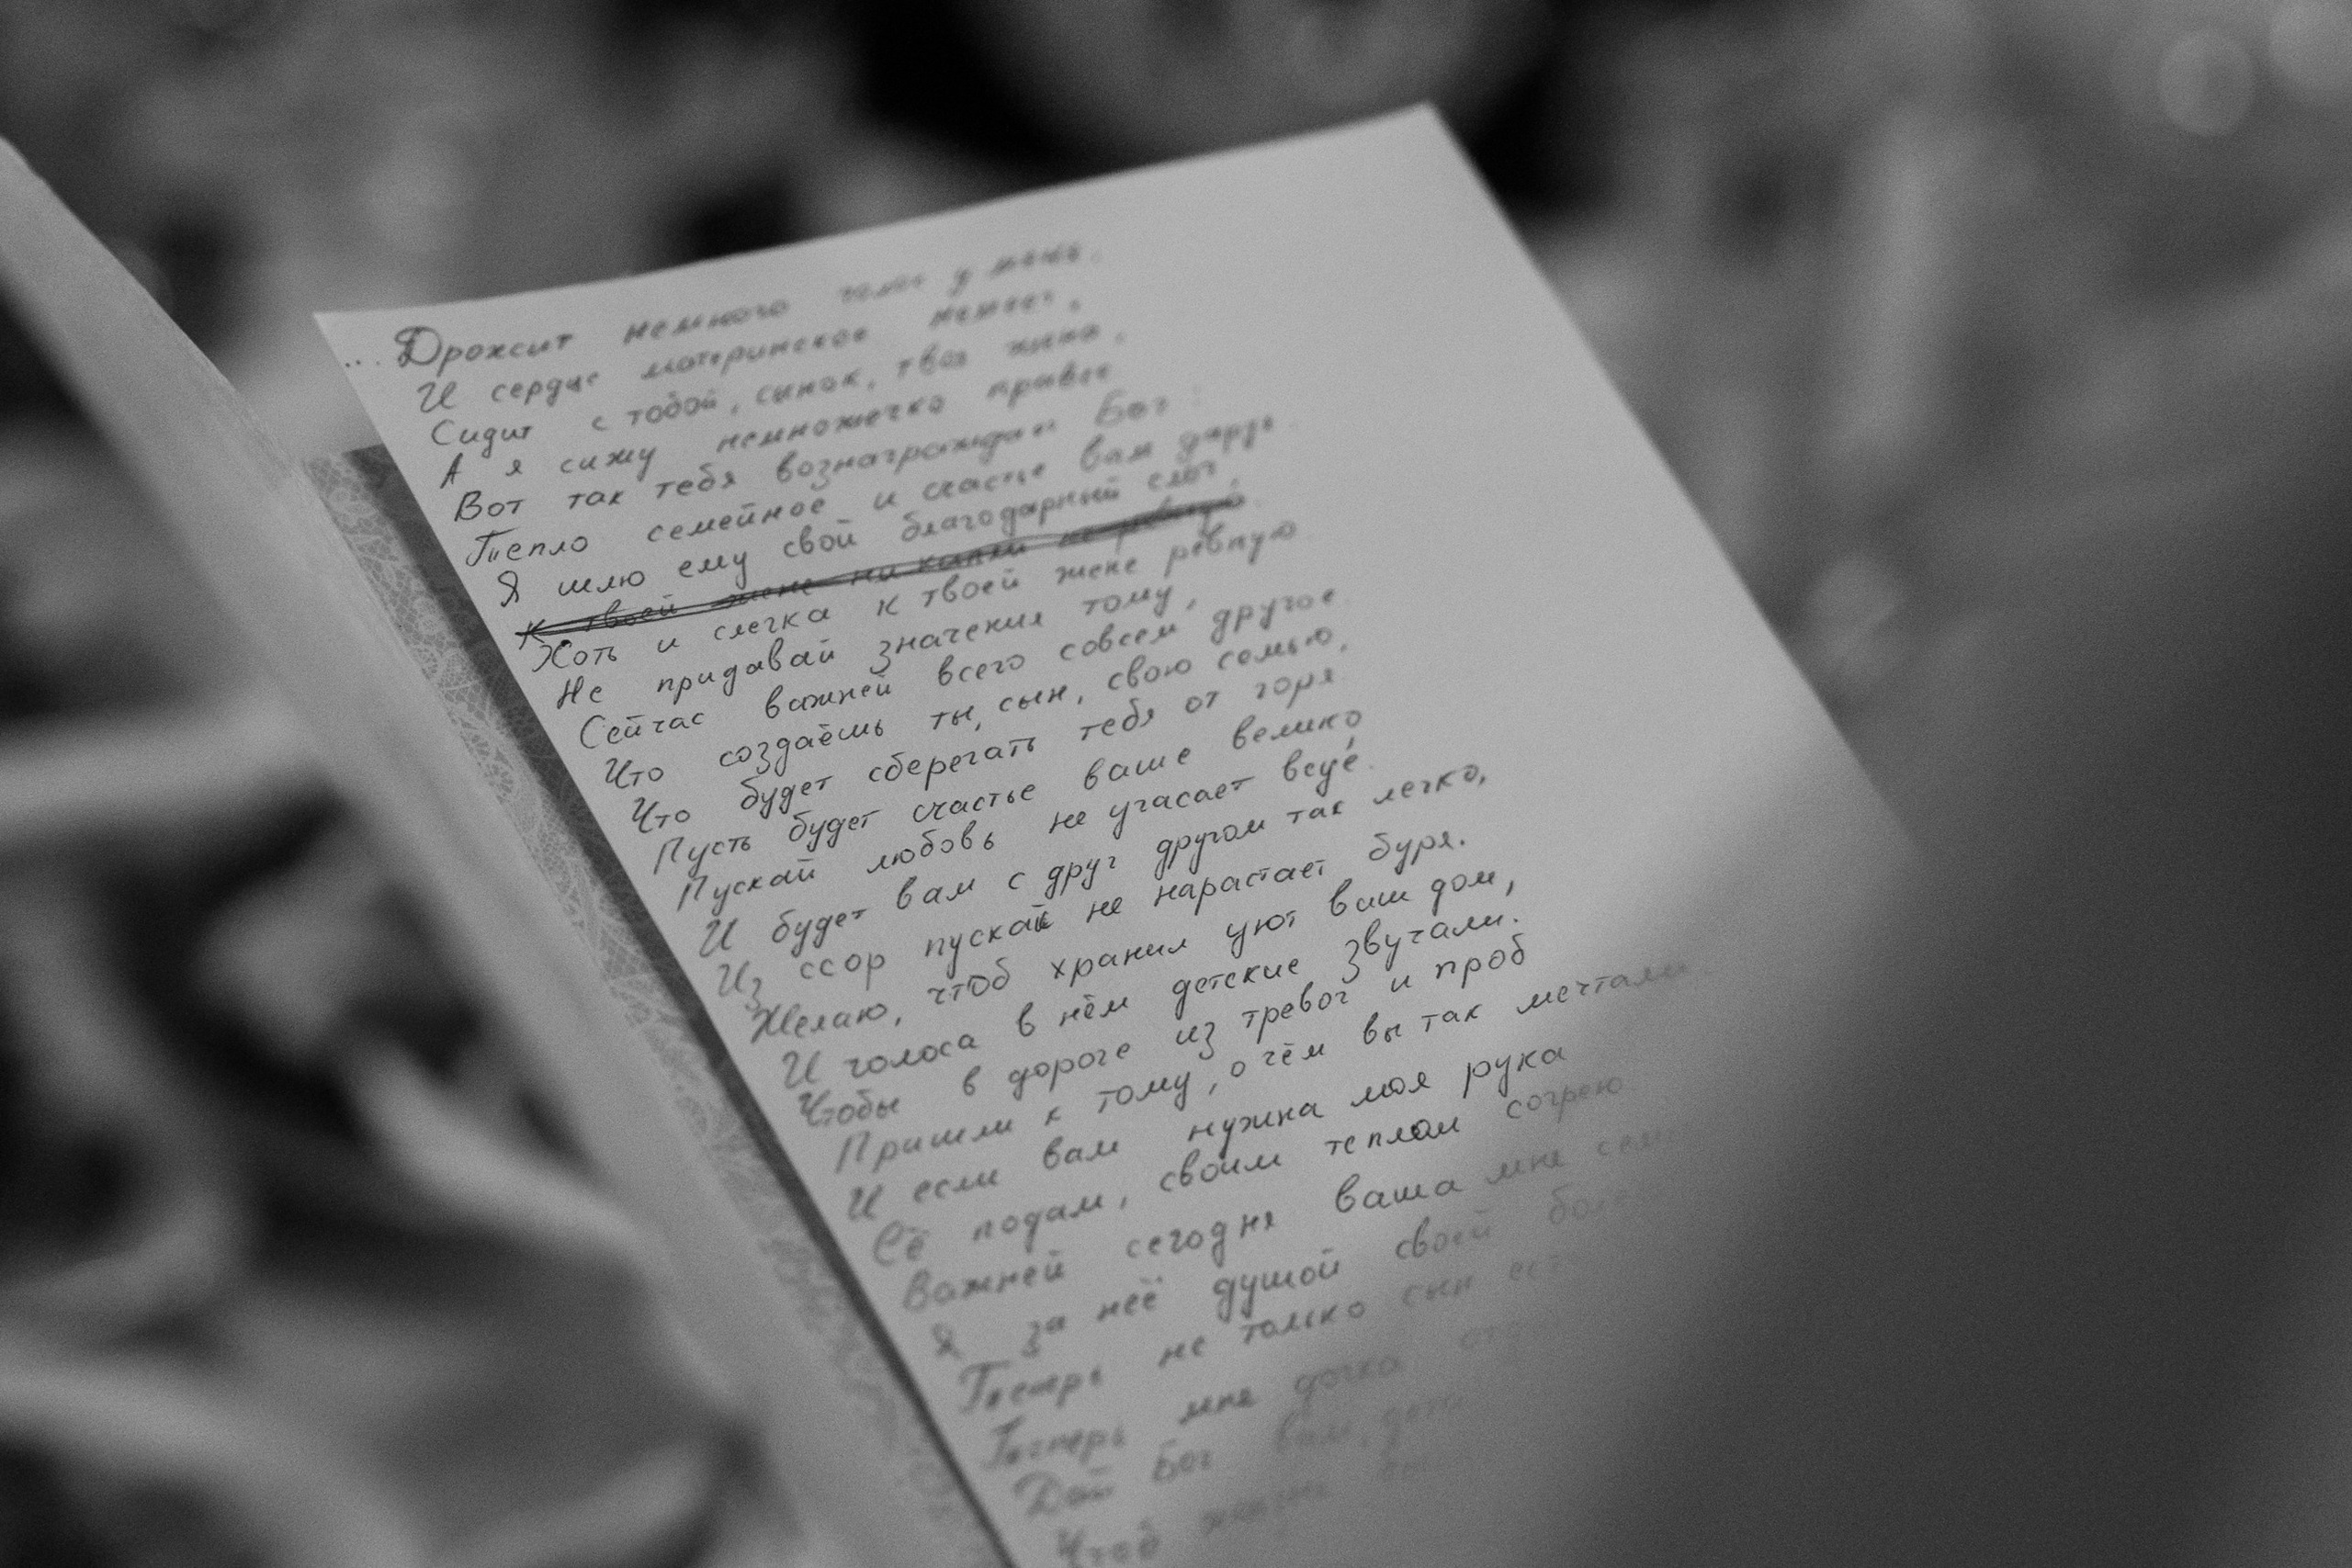 ... Дрожит немного голос у меня.
И сердце материнское немеет,
Сидит с тобой, сынок, твоя жена,
А я сижу немножечко правее
Вот так тебя вознаграждает Бог:
Тепло семейное и счастье вам даря.
Я шлю ему свой благодарный слог,
К твоей жене ни капли не ревную
Хоть и слегка к твоей жене ревную
Не придавай значения тому,
Сейчас важней всего совсем другое
Что создаёшь ты, сын, свою семью,
Что будет сберегать тебя от горя.
Пусть будет счастье ваше велико
Пускай любовь не угасает всуе́.
И будет вам с друг другом так легко,
Из ссор пускай не нарастает буря.
Желаю, чтоб хранил уют ваш дом,
И голоса в нём детские звучали.
Чтобы в дороге из тревог и проб
Пришли к тому, о чём вы так мечтали
И если вам нужна моя рука
Её подам, своим теплом согрею
Важней сегодня ваша мне
Я за неё душой своей
Теперь не только сын
Теперь мне дочка
Дай Бог вам,
Чтоб